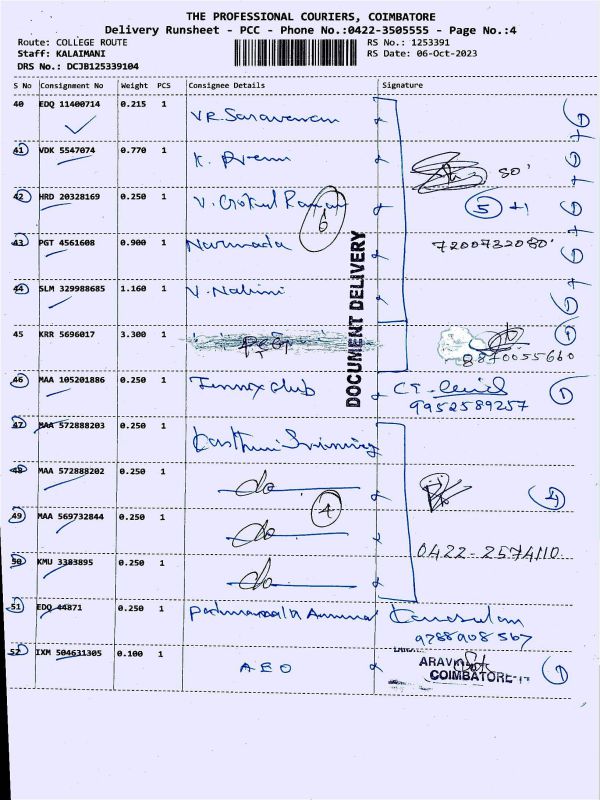 THE PROFESSIONAL COURIERS, COIMBATORE
Delivery Runsheet - PCC - Phone No.:0422-3505555 - Page No.:4
Route: COLLEGE ROUTE RS No.: 1253391
Staff: KALAIMANI RS Date: 06-Oct-2023
DRS No.: DCJB125339104
S No Consignment No Weight PCS Consignee Details Signature
40 EDQ 11400714 0.215 1 V.R. Saravanan
41 VDK 5547074 0.770 1 K. Prem
50'
42 HRD 20328169 0.250 1 V. Gokul Raman 5 +1
6
43 PGT 4561608 0.900 1 Narmada 7200732080
44 SLM 329988685 1.160 1 V. Nalini
DOCUMENT DELIVERY
45 KRR 5696017 3.300 1 1
8870055660
46 MAA 105201886 0.250 1 club 1
9952589257
47 MAA 572888203 0.250 1
48 MAA 572888202 0.250 1 do 4
4
49 MAA 569732844 0.250 1 do
0422-2574110
50 KMU 3383895 0.250 1 do
51 EDQ 44871 0.250 1
9788908567
52 IXM 504631305 0.100 1 AEO 1
COIMBATORE